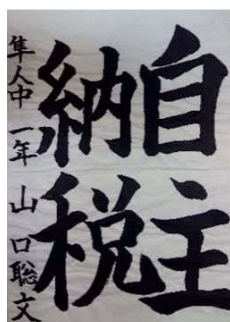 自主
納税
隼人中 一年 山口聡文